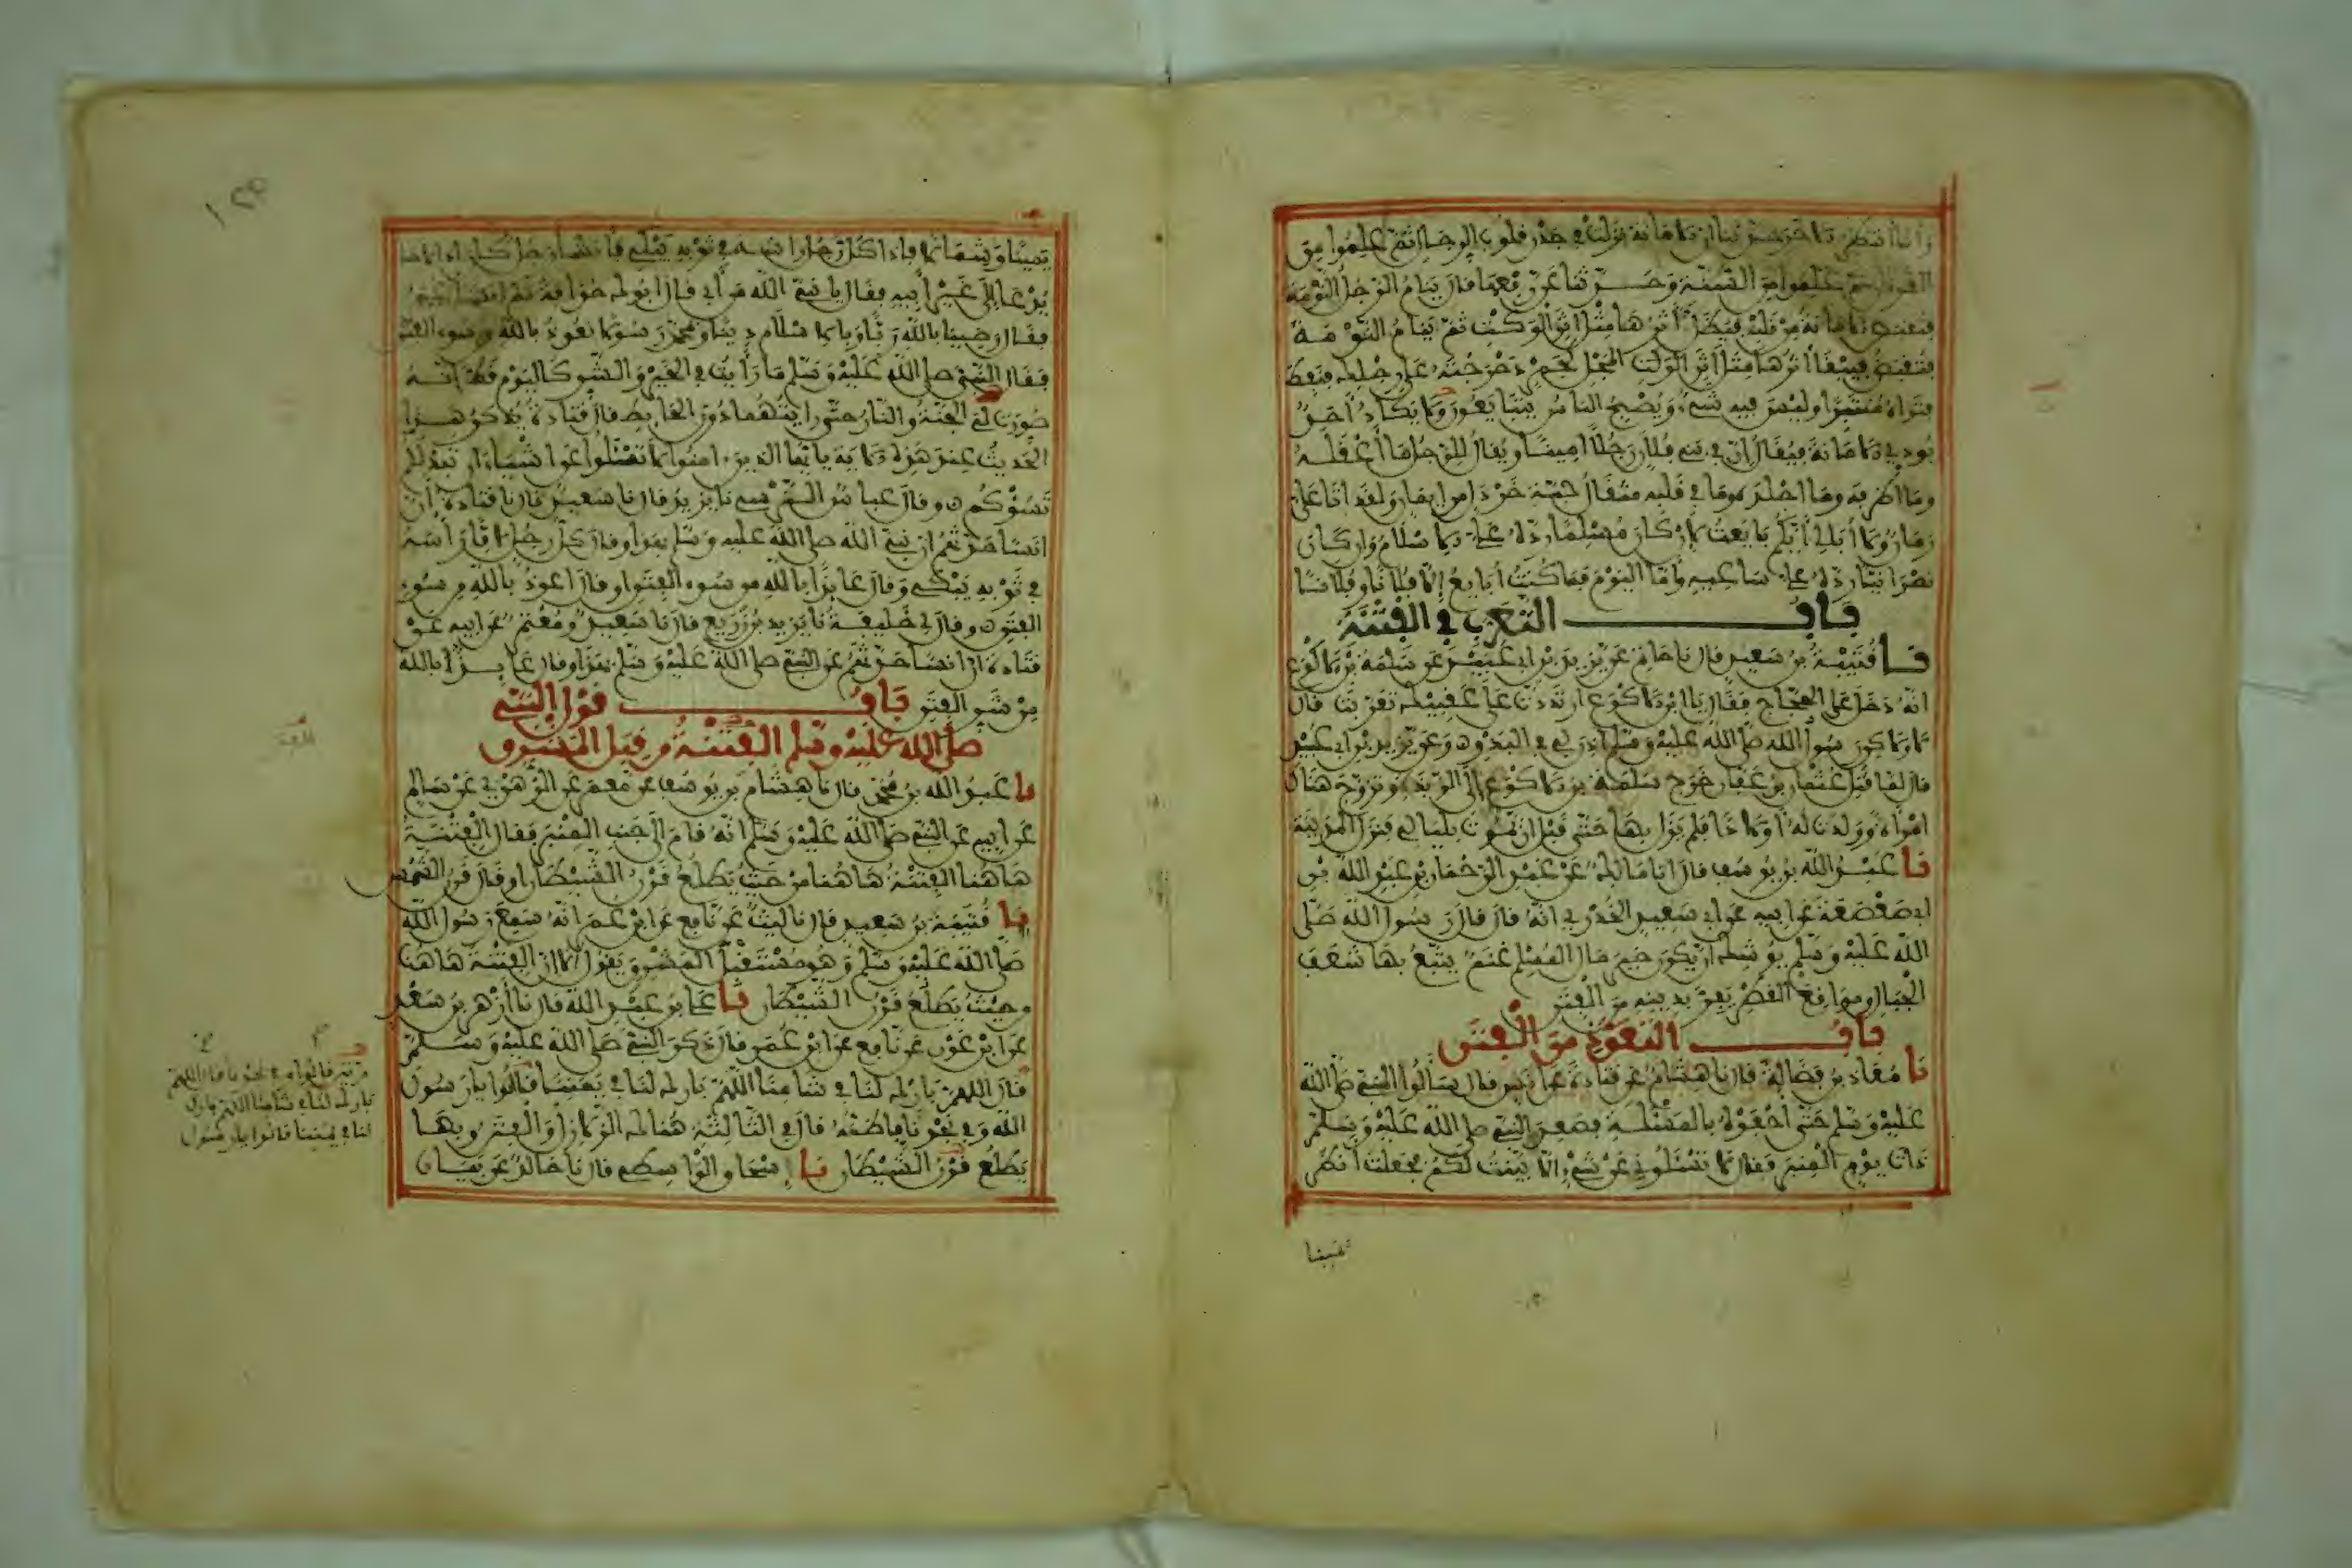 وأنا أنتظر الاخر حدثنا ان الامانة نزلت في جذر قلوب الرجال ثم علموا من
القرءان ثم علموا من السنة وحدثنا عن رفعها قال ينام الرجل النومة
فتقبض الامانة من قلبه فيظل أثرها مثل اثر الوكت ثم ينام النومة
فتقبض فيبقا أثرها مثل أثر المجل كجمر دحرجته على رجلك فنفط
فتراه منتبرا وليس فيه شيء ويصبح الناس يتبايعون ولا يكاد أحد
يودي الامانة فيقال ان في بني فلان رجلا امينا ويقال للرجل ما أعقله
وما اظرفه وما اجلده وما في قلبه مثقال حبة خردل من ايمان ولقد اتا علي
زمان ولا أبالي أيكم بايعت لان كان مسلما رده علي الاسلام وان كان
نصرانيا رده علي ساعيه وأما اليوم فما كنت أبايع إلا فلانا وفلانا
باب التعرب في الفتنة
نا قتيبة بن سعيد قال نا حاتم عن يزيد بن أبي عبيد عن سلمة بن الاكوع
انه دخل على الحجاج فقال يا ابن الاكوع ارتددت على عقبيك تعربت قال
لا ولاكن رسول الله صلى الله عليه وسلم اذن لي في البدو وعن يزيد بن أبي عبيد
قال لما قتل عثمان بن عفان خرج سلمة بن الاكوع إلى الربذة وتزوج هناك
امرأة وولدت له أولادا فلم يزل بها حتى قبل ان يموت بليالي فنزل المدينة
نا عبد الله بن يوسف قال انا مالك عن عبد الرحمان بن عبد الله بن
ابي صعصعة عن ابيه عن ابي سعيد الخدري انه قال قال رسول الله صلى
الله عليه وسلم يوشك أن يكون خير مال المسلم غنم يتبع بها شعف
الجبال ومواقع القطر يفر بدينه من الفتن
باب التعوذ من الفتن
نا معاذ بن فضالة قال نا هشام عن قتادة عن انس قال سألوا النبي صلى الله
عليه وسلم حتى احفوه بالمسئلة فصعد النبي صلى الله عليه وسلم
ذات يوم المنبر فقال لا تسئلوني عن شيء إلا بينت لكم فجعلت أنظر
يمينا
يمينا وشمالا فاذا كل رجل رأسه في ثوبه يبكي فأنشأ رجل كان اذا لاحا
يدعا إلى غير أبيه فقال يا نبي الله من أبي قال أبوك حذافة ثم أنشأ عمر
فقال رضينا بالله ربا وبالاسلام دينا وبمحمد رسولا نعوذ بالله من سوء الفتن
فقال النبي صلى الله عليه وسلم ما رأيت في الخير والشر كاليوم قط انه
صورت لي الجنة والنار حتى رايتهما دون الحايط قال قتادة يذكر هذا
الحديث عند هذه الاية يا أيها الذين ءامنوا لا تسئلوا عن اشياء ان تبد لكم
تسؤكم وقال عباس النرسي نا يزيد قال نا سعيد قال نا قتادة أن
انسا حدثهم ان نبي الله صلى الله عليه وسلم بهذا وقال كل رجل لافا رأسه
في ثوبه يبكي وقال عايذا بالله من سوء الفتن او قال اعوذ بالله من سوء
الفتن وقال لي خليفة نا يزيد بن زريع قال نا سعيد ومعتمر عن ابيه عن
قتادة ان انسا حدثهم عن النبي صلى الله عليه وسلم بهذا وقال عايذا بالله
من شر الفتن باب قول النبي
صلى الله عليه وسلم الفتنة من قبل المشرق
نا عبد الله بن محمد قال نا هشام بن يوسف عن معمر عن الزهري عن سالم
عن ابيه عن النبي صلى الله عليه وسلم انه قام الى جنب المنبر فقال الفتنة
هاهنا الفتنة هاهنا من حيث يطلع قرن الشيطان او قال قرن الشمس
نا قتيبة بن سعيد قال نا ليث عن نافع عن ابن عمر انه سمع رسول الله
صلى الله عليه وسلم وهو مستقبل المشرق يقول ألا إن الفتنة هاهنا
من حيث يطلع قرن الشيطان نا علي بن عبد الله قال نا أزهر بن سعد
عن ابن عون عن نافع عن ابن عمر قال ذكر النبي صلى الله عليه وسلم
قال اللهم بارك لنا في شامنا اللهم بارك لنا في يمننا قالوا يا رسول
الله وفي نجدنا فاظنه قال في الثالثة هنالك الزلازل والفتن وبها
يطلع قرن الشيطان نا إسحاق الواسطي قال نا خالد عن بيان
قالوا وفي نجدنا قال اللهم
بارك لنا في شامنا اللهم بارك
لنا في يمننا قالوا يا رسول
١٢٩